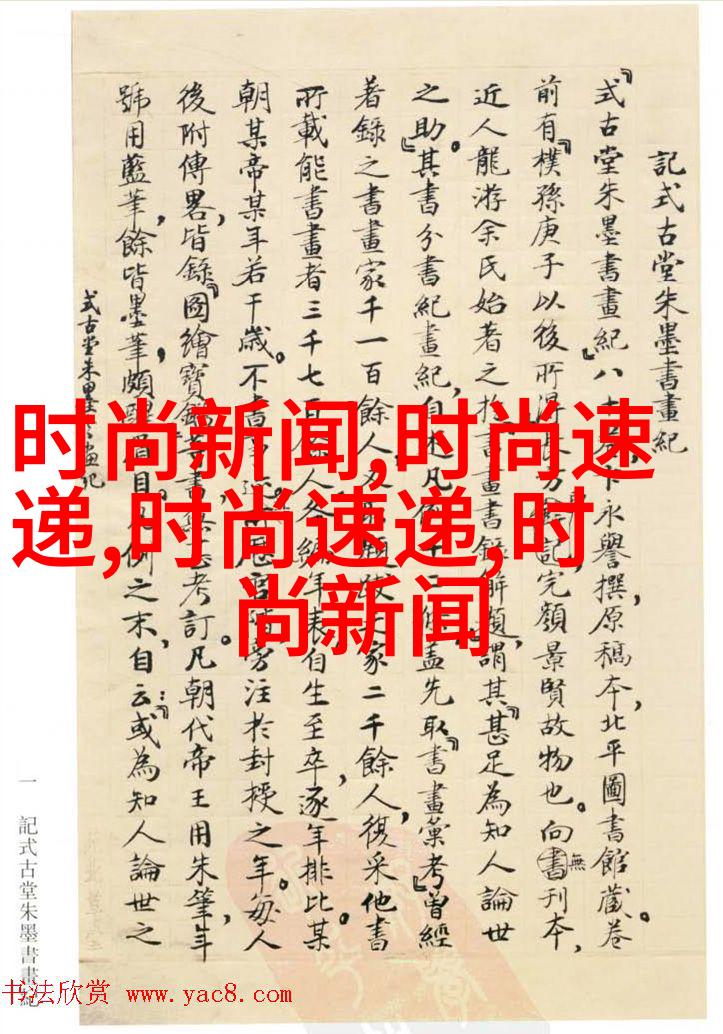 記式古堂朱墨書畫紀
『式古堂朱墨書畫紀』八十卷,卞永譽撰,原稿本,北平圖書館藏。卷
前有『樸孫庚子以後所得
記,完顏景賢故物也。向無書刊本,
近人龍游余氏始著之於書畫書錄解題,謂其『甚足為知人論世
之助』。其書分書紀畫紀,自
蓋先取『書畫彙考』曾經
著錄之書畫家千一百餘人,又
家二千餘人,復采他書
所載能書畫者三千七百餘人,各編年表,自生至卒,逐年排比,某
朝某帝某年若干歲。不書
旁注於封授之年。每人
後附傳畧,皆錄『圖繪寶鑑
考訂。凡朝代帝王用朱筆,年
號用藍筆,餘皆墨筆,頗醒眉目。凡例之末,自云:『或為知人論世之
式古堂朱墨書畫記
一
記式古堂朱墨書畫紀
时尚新闻,时尚速
递,时尚速递,时
尚新闻
书法欣赏 www.yac8.com